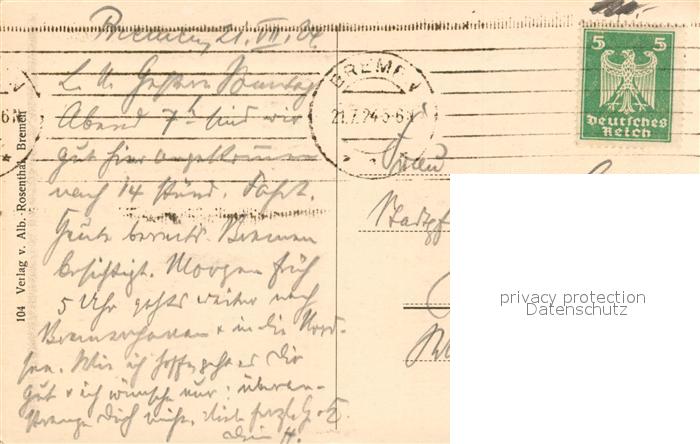 Bremen, 21. VII. 24
L. A. Gestern Sonntag
Abend 7 sind wir
gut hier angekommen
nach 14 stünd. Fahrt.
Heute bereits Bremen
besichtigt. Morgen früh
5 Uhr gehts weiter nach
Bremerhaven & in die Nord-
see. Wie ich hoffe geht es Dir
gut & ich wünsche nur: überan-
strenge Dich nicht. herzl.
Dein H.
104 Verlag v. Alb. Rosenthal, Bremen
BREMEN
21.7.24 5-6N
5 5
Deutsches
Reich
Frau
Stadtpf
privacy protection
Datenschutz